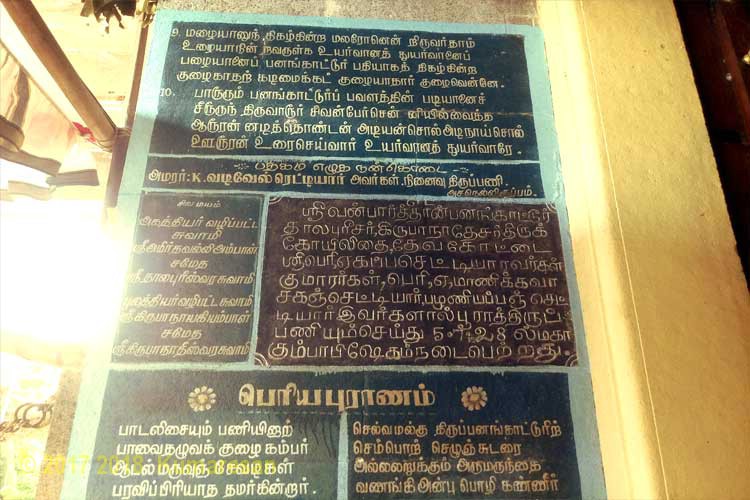 9. மழையானுந் திகழ்கின்ற மலரோனென் றிருவர்தாம்
உழையாநின் றவருள்க உயர்வானத் துயர்வானைப்
பழையானைப் பனங்காட்டூர் பதியாகத் திகழ்கின்ற
குழைகாதற் கடிமைக்கட் குழையாதார் குழைவென்னே.
10. பாரூரும் பனங்காட்டூர்ப் பவளத்தின் படியானைச்
சீரூருந் திருவாரூர் சிவன்பேர்சென் னியில்வைத்த
ஆரூரன் னடித்தொண்டன் அடியன்சொல் அடிநாய்சொல்
ஊரூரன் உரைசெய்வார் உயர்வானத் துயர்வாரே.
பதிகம் எழுத நன்கொடை
அமரர்: K. வடிவேல்ரெட்டியார் அவர்கள். நினைவு திருப்பணி
சிவமயம்
அகத்தியர் வழிப்பட்ட
சுவாமி
ஸ்ரீஅமிர்தவல்லிஅம்பாள்
சமேத
ஸ்ரீதாலபுரீஸ்வரசுவாமி
புலத்தியர்வழிபட்டசுவாமி
ஸ்ரீகிருபாநாயகியம்பாள்
சமேத
ஸ்ரீகிருபாநாதீஸ்வரசுவாமி
ஸ்ரீவன்பார்த்தான்பனங்காட்டூர்
தாலபுரீசர், கிருபாநாதேசர்திருக்
கோயிலிதை, தேவகோட்டை
ஸ்ரீபெரி, ஏகப்பசெட்டியாரவர்கள்
குமாரர்கள், பெரி, ஏ, மாணிக்கவா
சகஞ்செட்டியார், பழனியப்பஞ்செட்
டியார் இவர்களால் பூராத்திருப்
பணியும்செய்து
கும்பாபிஷேகம்நடைபெற்றது.
பெரியபுராணம்
பாடலிசையும் பணியினாற்
பாவைதழுவக் குழை கம்பர்
ஆடல் மருவுஞ் சேவடிகள்
பரவிப்பிரியாத தமர்கின்றார்.
செல்வமல்கு திருப்பனங்காட்டூரிற்
செம்பொற் செழுஞ் சுடரை
அல்லலறுக்கும் அருமருந்தை
வணங்கி அன்பு பொழி கண்ணீர்